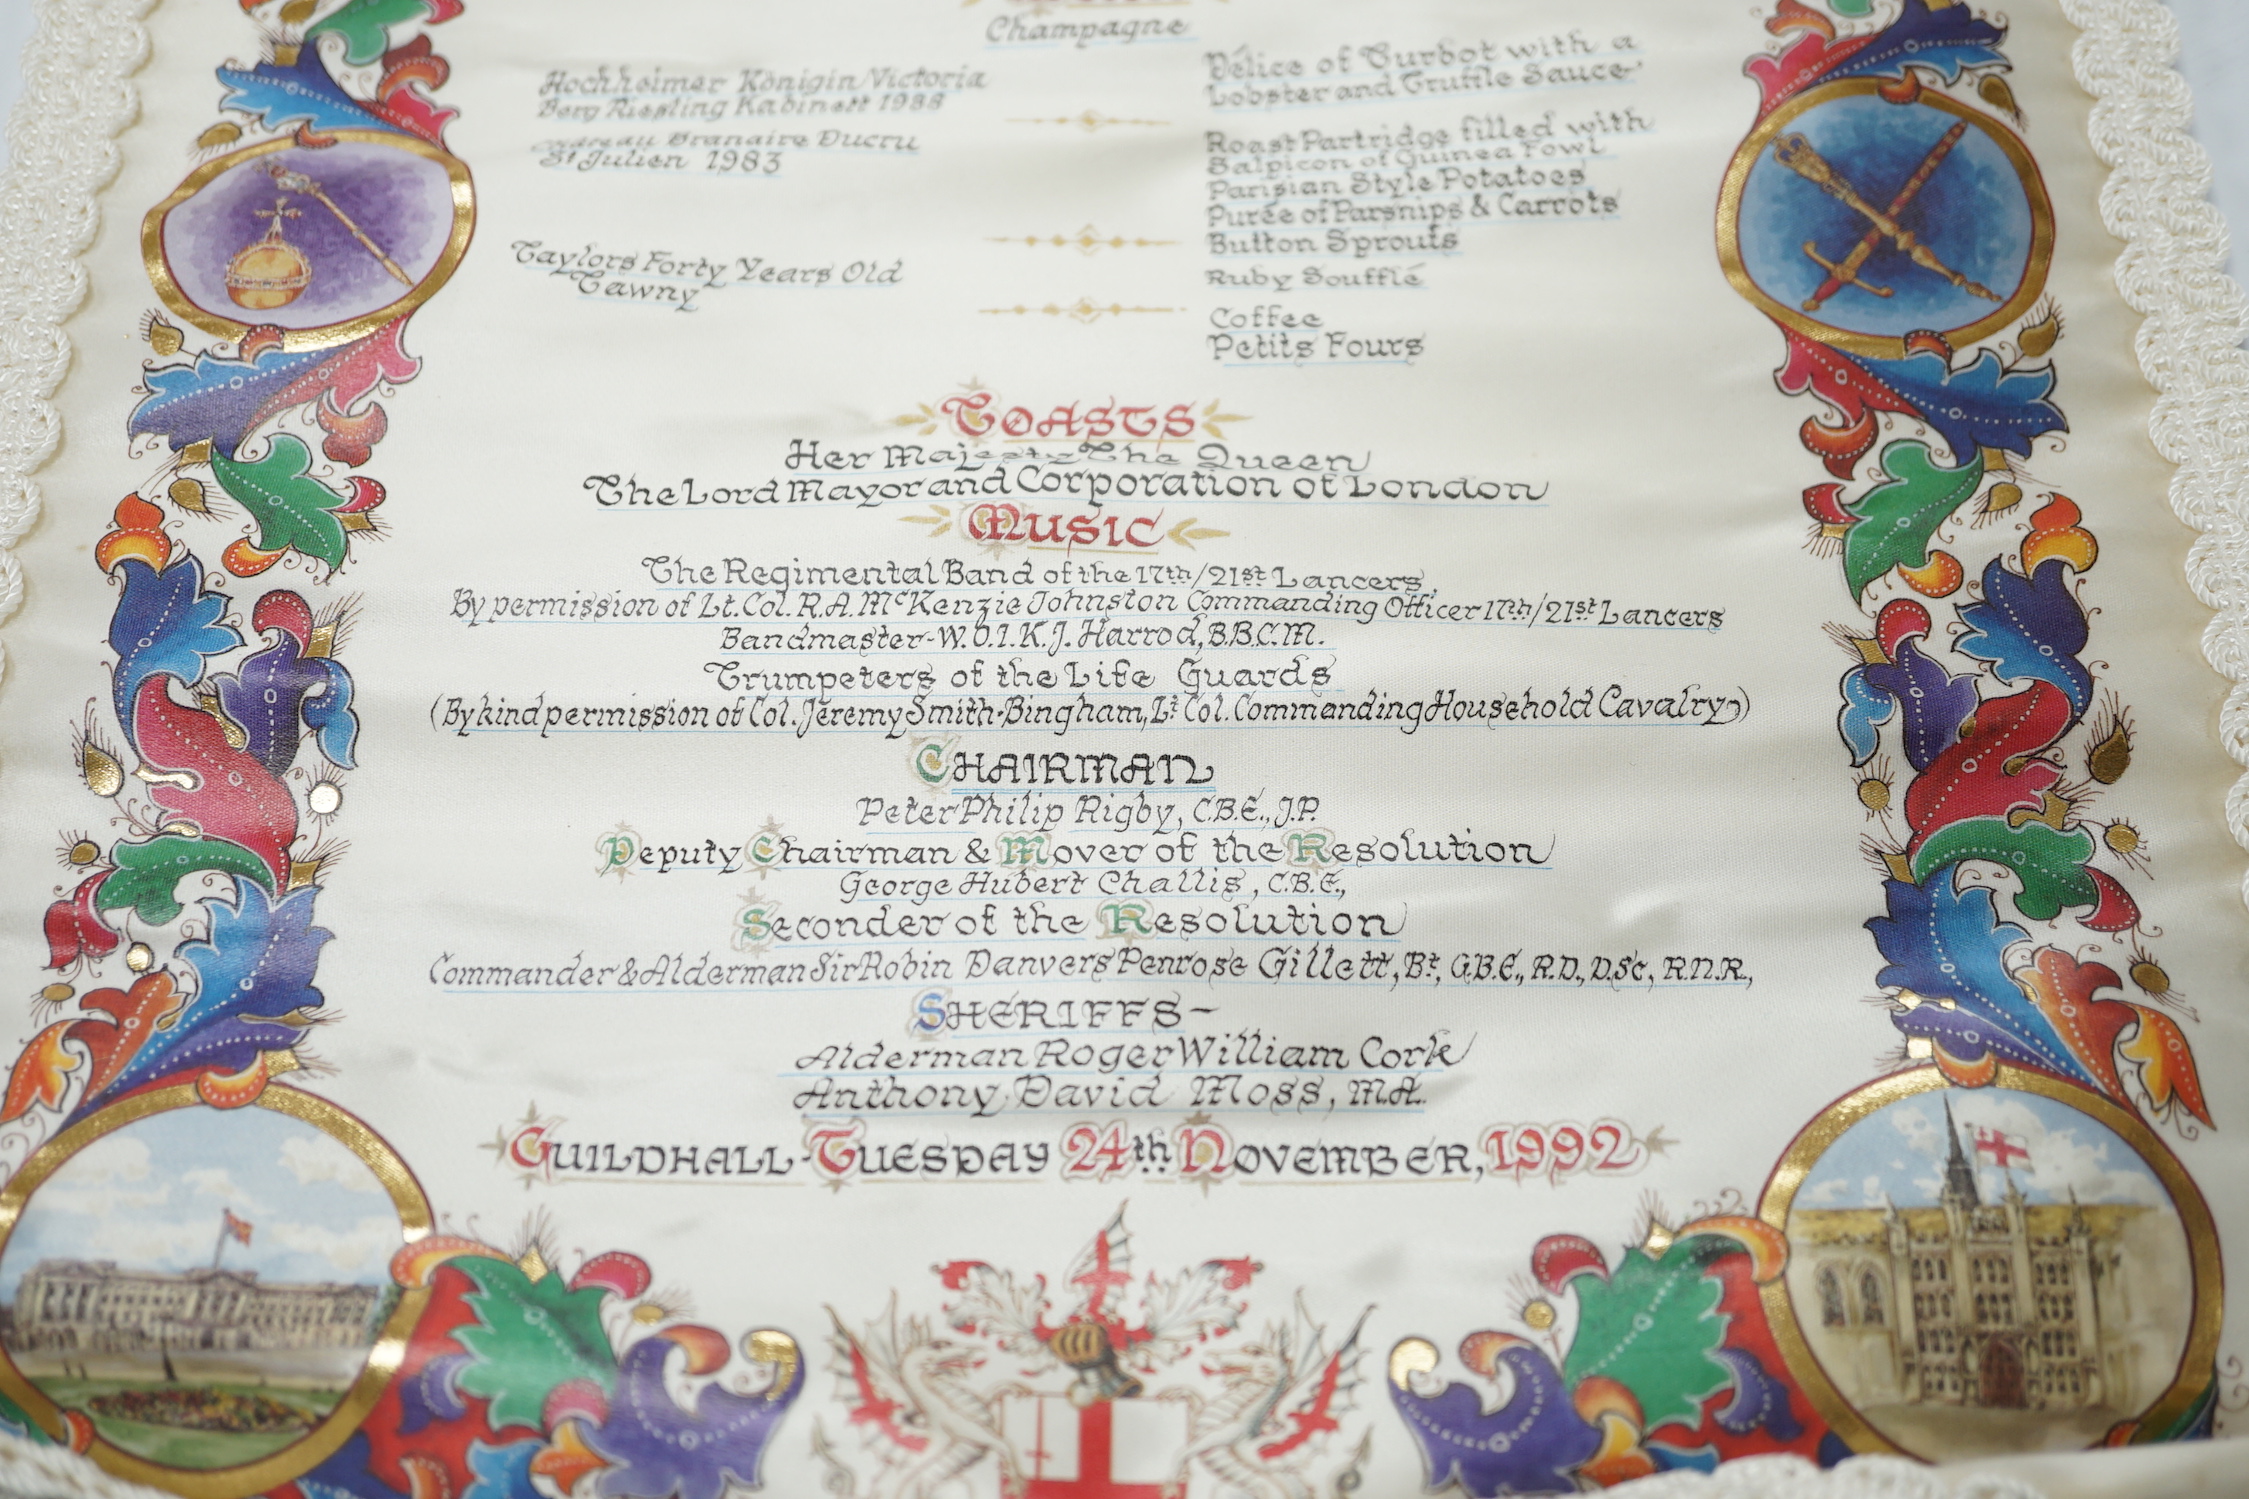 Champagne
Hochheimer Königin Victoria
Berg Riesling Kabinett 1988
Branaire Ducru
St Julien 1983
Taylors Forty Years Old
Tawny
Délice of Turbot with a
Lobster and Truffle Sauce
Roast Partridge filled with
Salpicon of Guinea Fowl
Parisian Style Potatoes
Purée of Parsnips & Carrots
Button Sprouts
Ruby Soufflé
Coffee
Petits Fours
TOASTS
Her Majesty The Queen
The Lord Mayor and Corporation of London
MUSIC
The Regimental Band of the 17th/21st Lancers,
By permission of Lt. Col. R.A. McKenzie Johnston Commanding Officer 17th/21st Lancers
Bandmaster-W.O.1. K.J. Harrod, B.B.C.M.
Trumpeters of the Life Guards
(By kind permission of Col. Jeremy Smith-Bingham, Lt Col. Commanding Household Cavalry)
CHAIRMAN
Peter Philip Rigby, C.B.E., J.P.
Deputy Chairman & Mover of the Resolution
George Hubert Challis, C.B.E.,
Seconder of the Resolution
Commander & Alderman Sir Robin Danvers Penrose Gillett, Bt, G.B.E., R.D., D.Sc, R.N.R.,
SHERIFFS-
Alderman Roger William Cork
Anthony David Moss, M.A.
GUILDHALL-TUESDAY 24th NOVEMBER, 1992